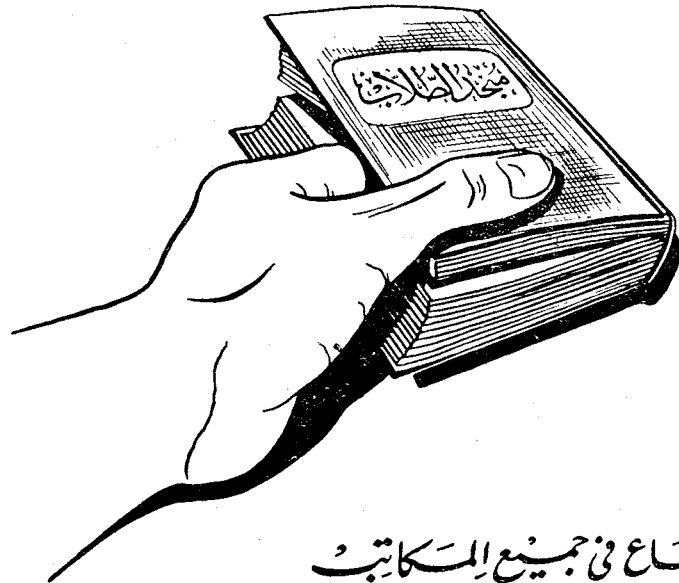 منجد الطلاب
في جميع المكاتب